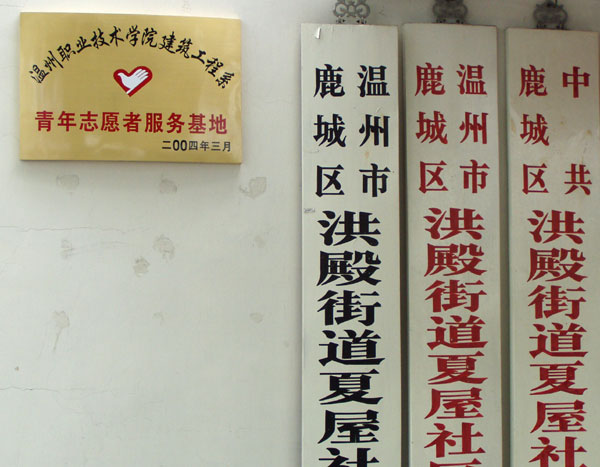 温州职业技术学院建筑工程系
青年志愿者服务基地
二00四年三月
温州市
鹿城区
洪殿街道夏屋社
温州市
鹿城区
洪殿街道夏屋社区
中共
鹿城区
洪殿街道夏屋社